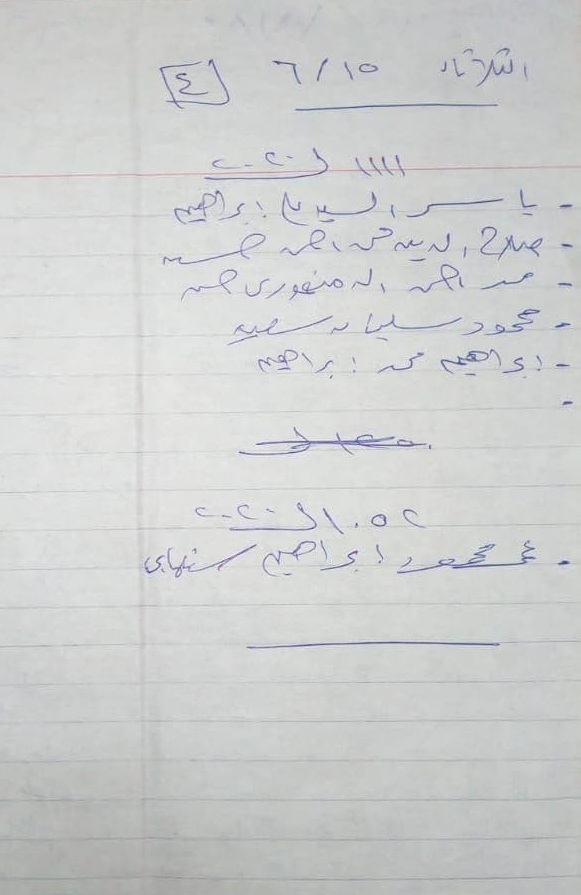 الثلاثاء ٦/١٥ [٤]
١١١١ لـ ٢٠٢٠
- ياسر السيد ابراهيم
- صلاح الدين محمد احمد حسن
- احمد الدمنهوري حسن
- محمود سليمان سعيد
- ابراهيم محمد ابراهيم
-
١٠٥٢ لـ ٢٠٢٠
- محمود ابراهيم